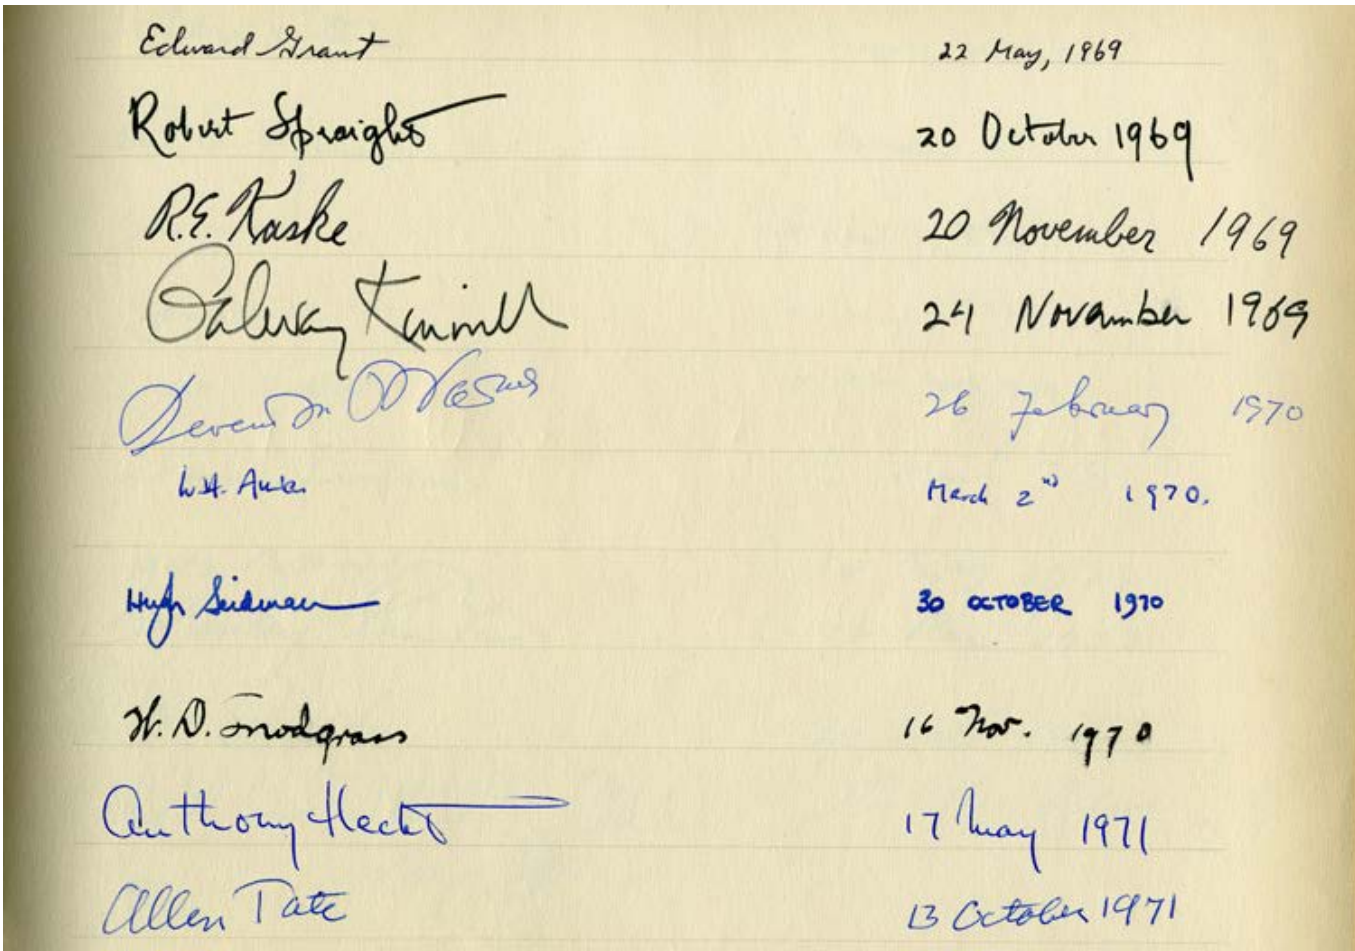 Edward Grant 22 May, 1969
Robert Speaight 20 October 1969
R.E. Kaske 20 November 1969
Galway Kinnell 24 November 1969
26 February 1970
W.H. Auden March 2nd 1970.
Hugh Seidman 30 OCTOBER 1970
W. D. Snodgrass 16 Nov. 1970
Anthony Hecht 17 May 1971
Allen Tate 13 October 1971